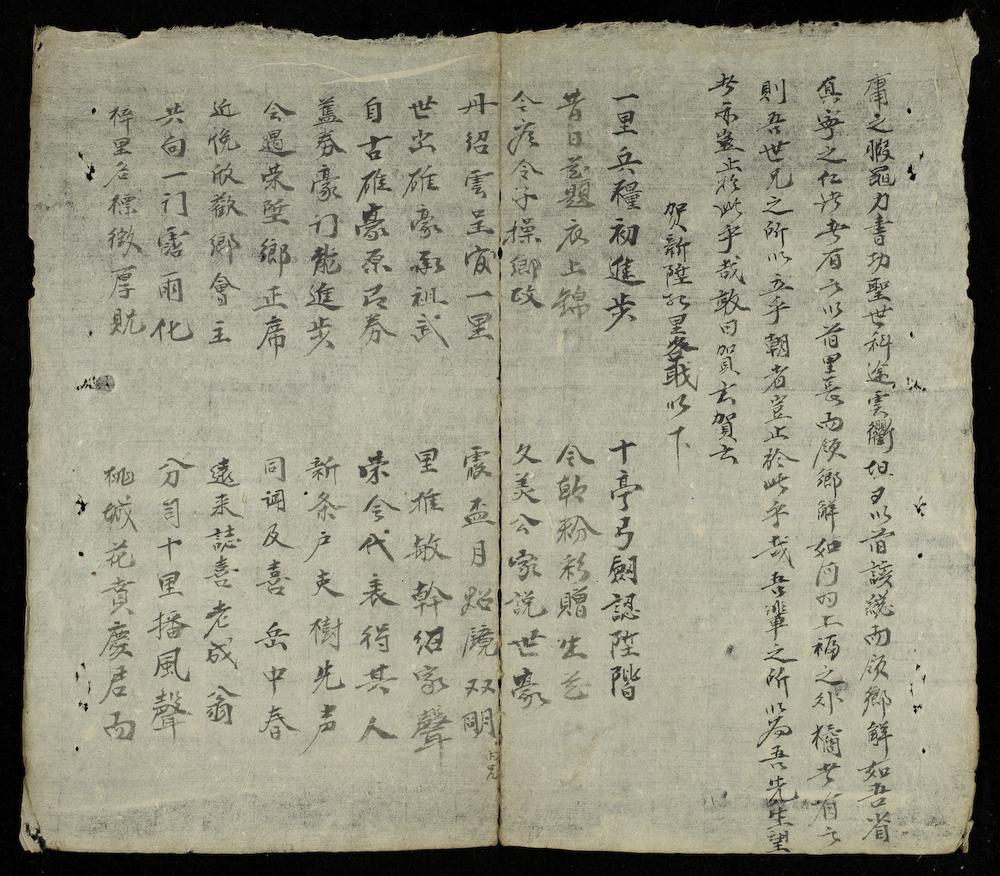 庸之暇黽力書功聖世科途雲衢坦又以首該統而領鄉解如吾省
真寧之仁者有云以首里長而領鄉解如之外者省云
則吾世兄之所以立乎朝者豈止於此乎哉吾輩之所以為吾先生望
者亦豈止於此乎哉敢曰賀云賀云
賀新陞里以下
一里兵糧初進步 十亭弓劍認陞階
昔日花題衣上錦 令朝粉彩贈生花
令彥令子操鄉政 久美公家說世豪
丹紹雲呈宜一里 霞盃月照鏡双明
世出雄豪承祖武 里推敏幹紹家聲
自古雄豪原召募 榮今代表得其人
蓋募豪门龍進步 新条户吏樹先声
会遇荣陞鄉正席 同调及喜岳中春
近悅欣歡鄉會主 遠来誌喜老成翁
共向一门霑雨化 分司十里播風聲
梓里名標徵厚貺 桃城花賁慶居而